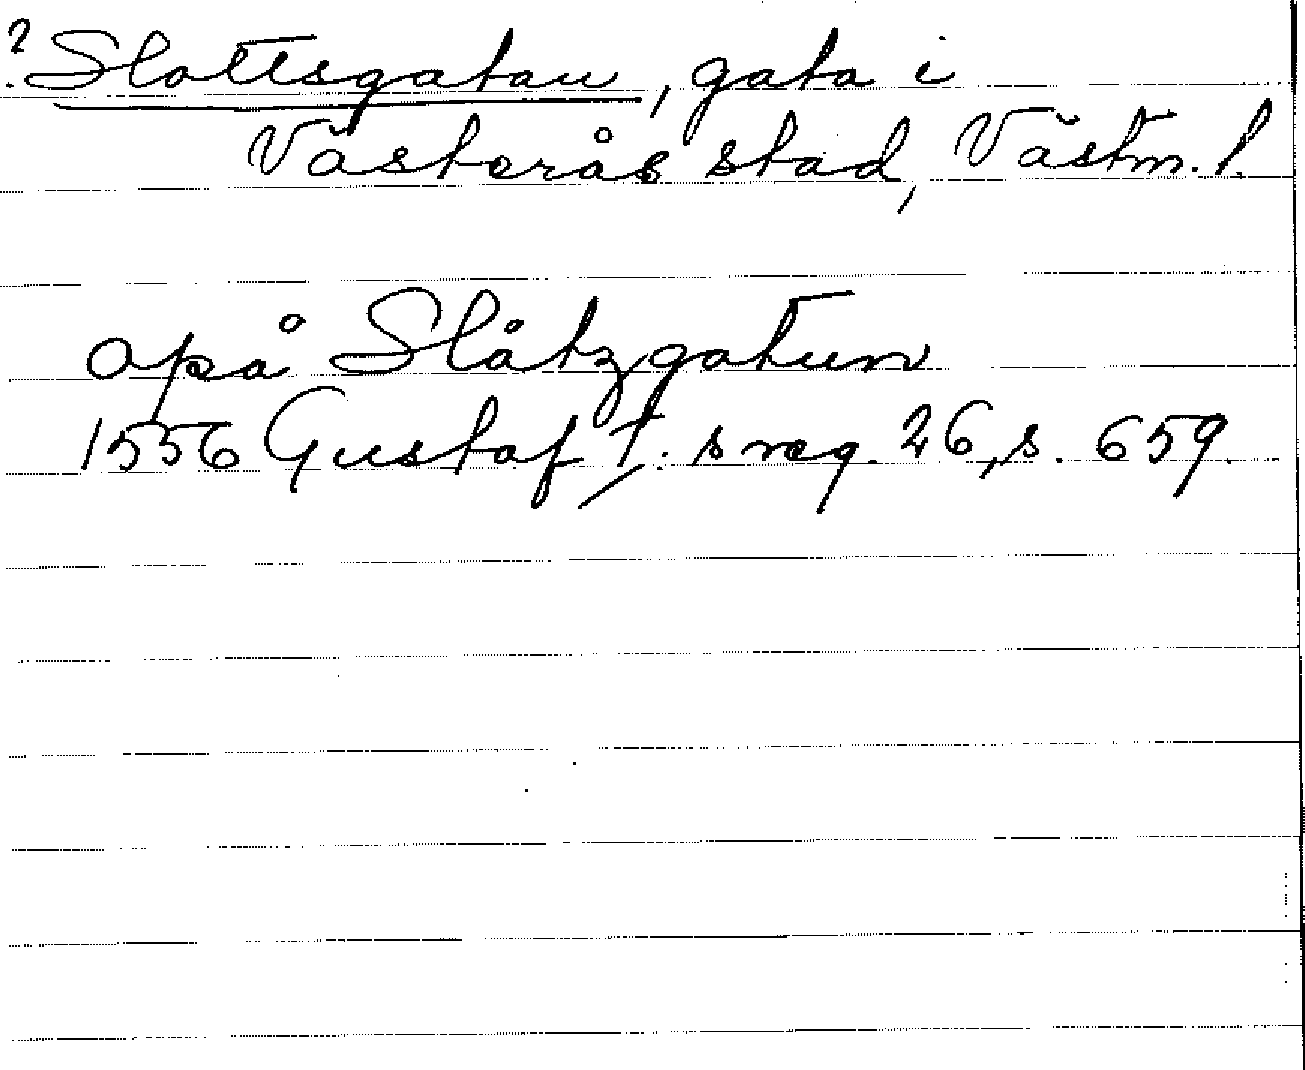 ? Slottsgatan, gata i
Västerås stad, Västm. l.
opå Slåtzgatun
1556 Gustaf I:s reg. 26, s. 659.